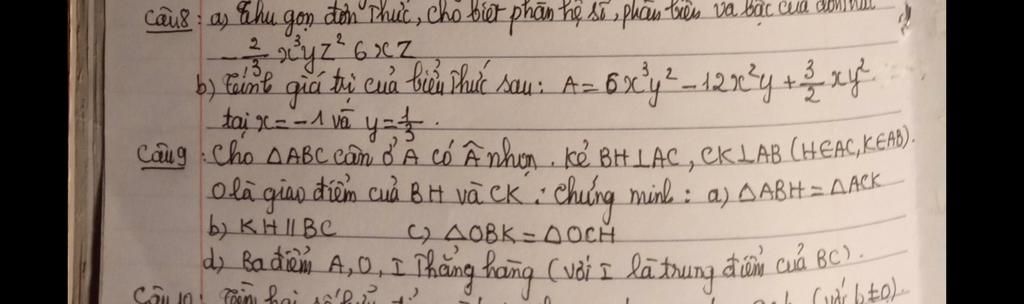 Câu8: a) Thu gọn đơn thức, cho biết phần hệ số, phần biến và bậc của đơn thức
-2/3 x³yz² 6xz
b) Tính giá trị của biểu thức sau: A = 6x³y² - 12x²y + 3/2 xy²
tại x = -1 và y = 1/3.
Câu9: Cho △ABC cân ở A có Â nhọn. Kẻ BH⊥AC, CK⊥AB (H∈AC, K∈AB).
O là giao điểm của BH và CK. Chứng minh: a) △ABH = △ACK
b) KH // BC c) △OBK = △OCH
d) Ba điểm A, O, I Thẳng hàng (với I là trung điểm của BC).
Câu10: Tìm hai số (với b≠0).